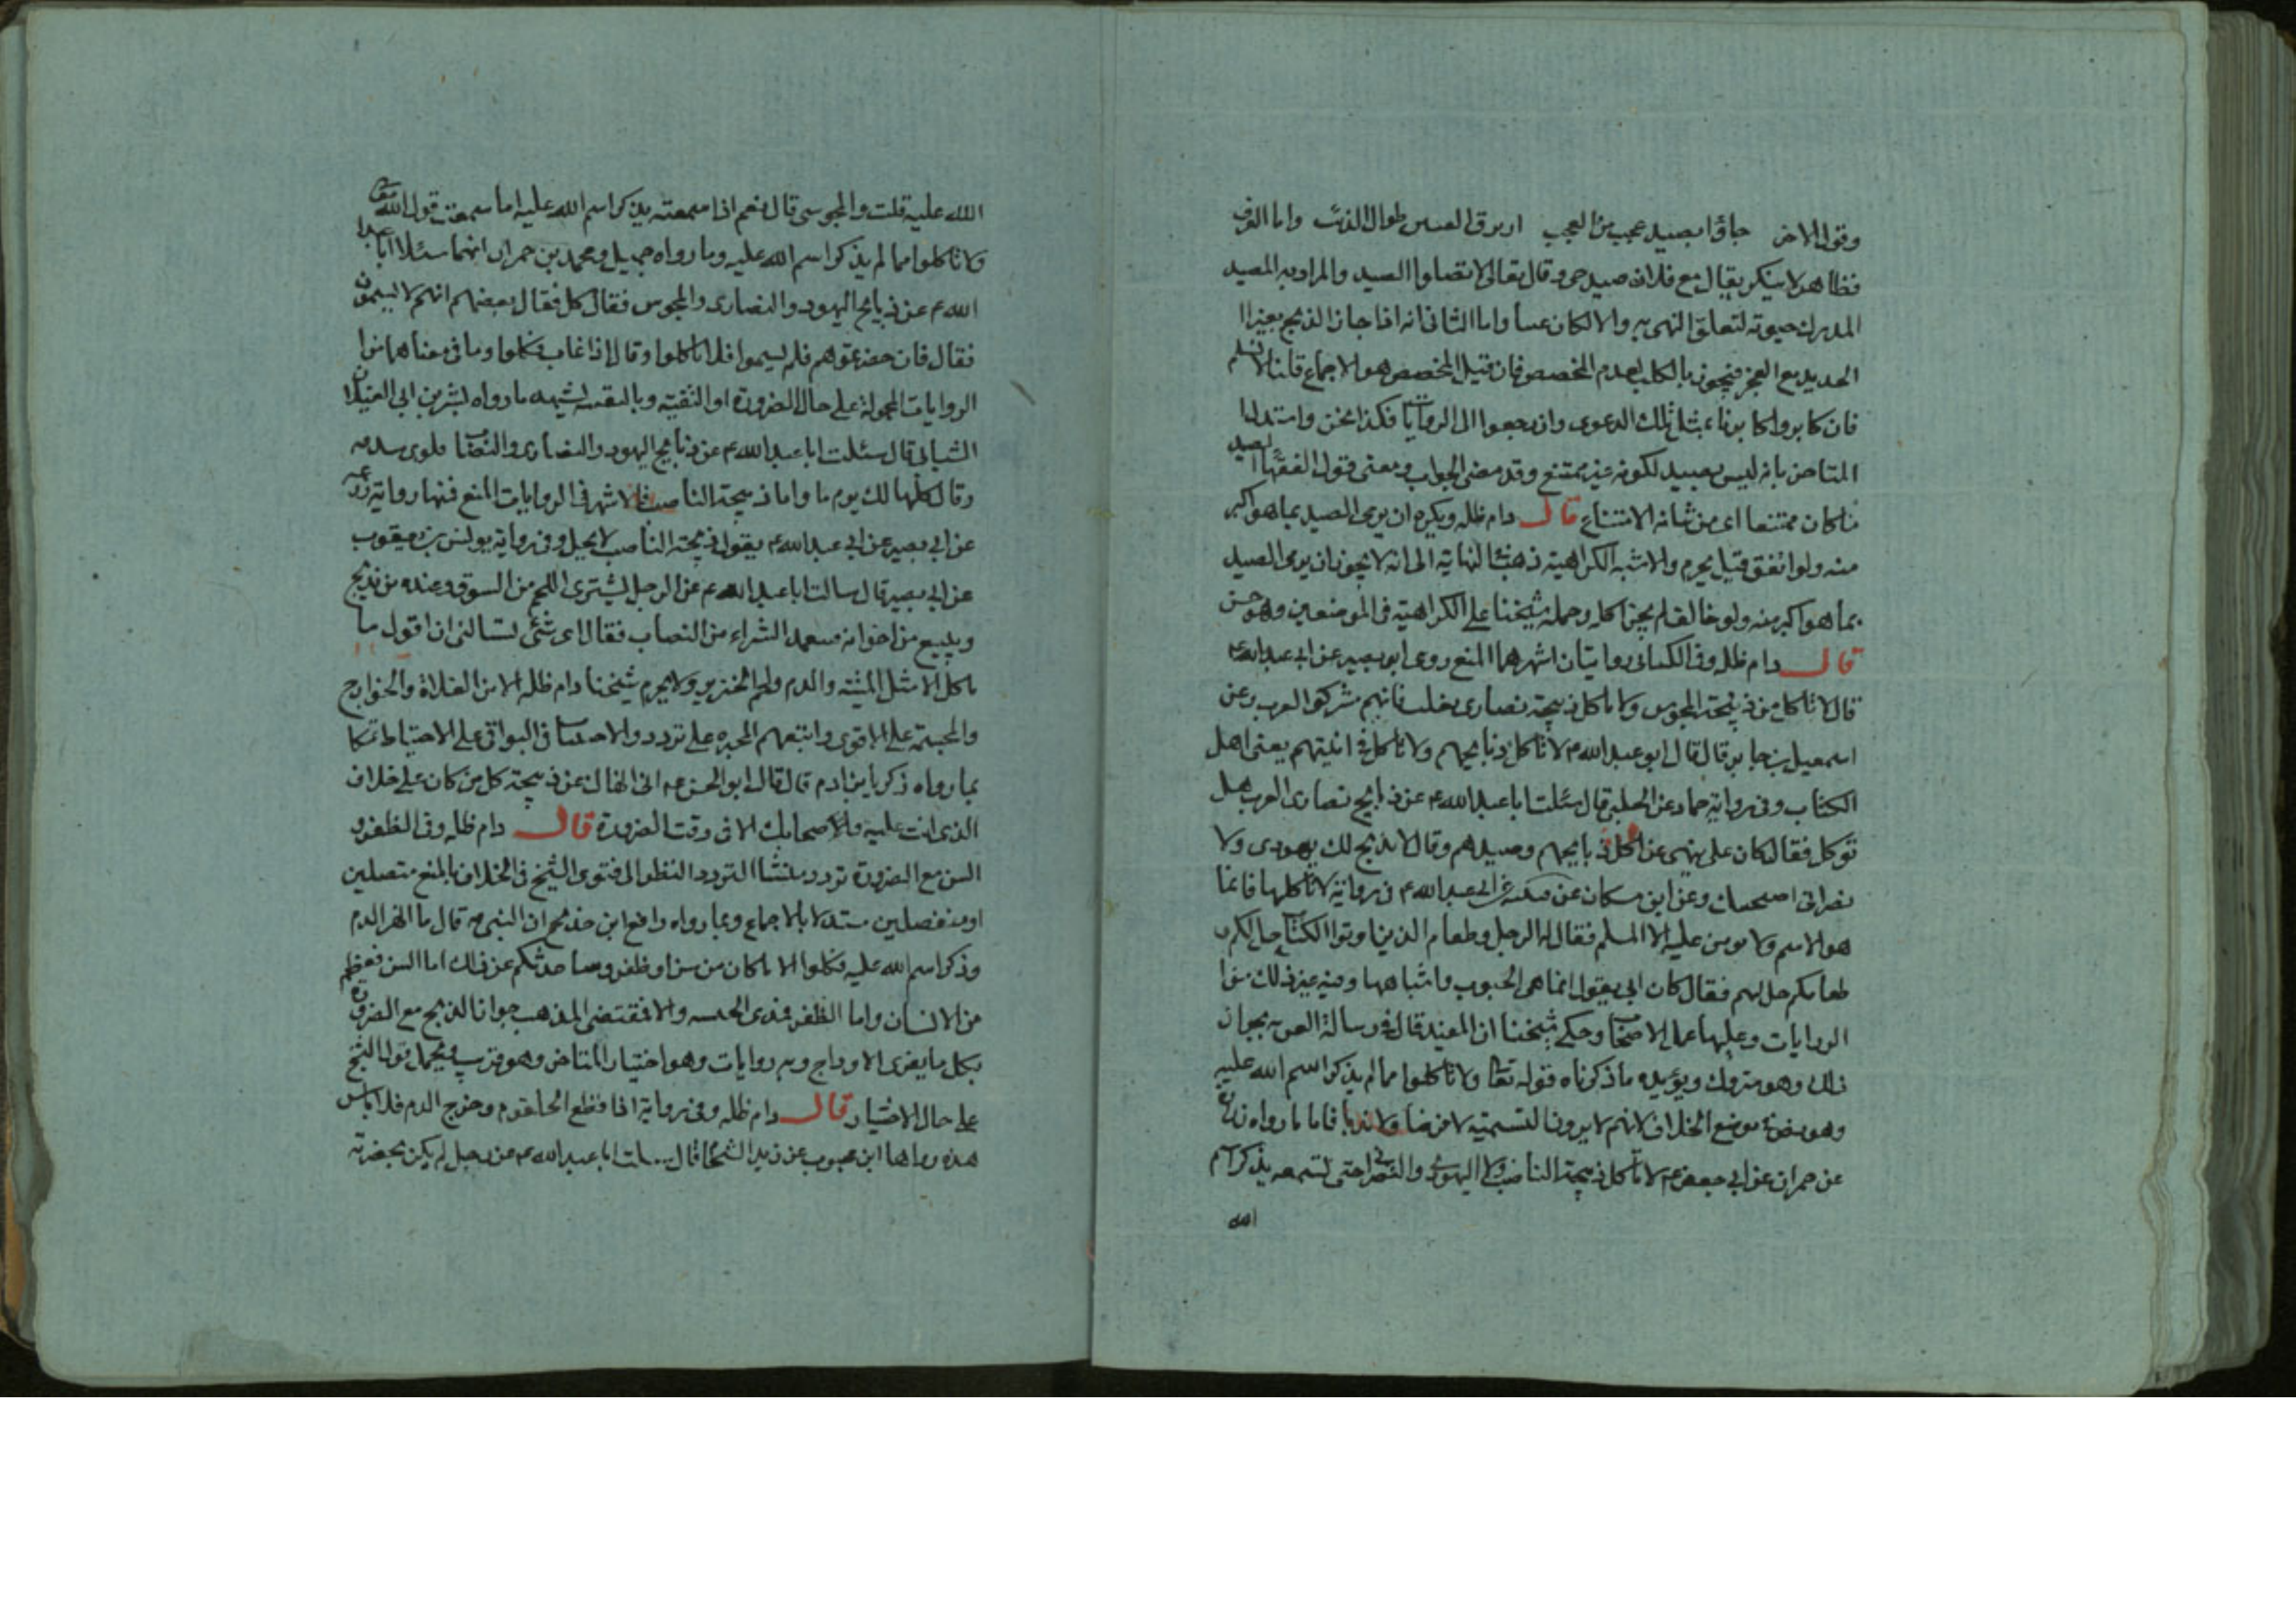 وقول الاخر جاؤا بصيد عجب من العجب ازيرق العينين طوال الذنب واما العرف
فظاهر لا ينكر يقال مع فلان صيد حى وقال تعالى لا تقتلوا الصيد والمراد به المصيد
المدرك حيوته لتعلق النهى به والا لكان عبثا واما الثانى انه اذا جاز الذبح بغير
الحديد مع العجز فيجوز بالكلب لعدم المخصص فان قيل المخصص هو الاجماع قلنا لا نسلم
فان كابروا كابرناء بمثل تلك الدعوى وان رجعوا الى الروايات فكذا نحن واستدل
المتاخر بانه ليس بصيد لكونه غير ممتنع وقد مضى الجواب ومعنى قول الفقهاء الصيد
ما كان ممتنعا اى من شانه الامتناع قال دام ظله ويكره ان يرمى الصيد بما هو اكبر
منه ولو اتفق قيل يحرم والاشبه الكراهية ذهب فى النهاية الى انه لا يجوز ان يرمى الصيد
بما هو اكبر منه ولو خالف لم يجز اكله وحمله شيخنا على الكراهية فى الموضعين وهو حسن
قال دام ظله وفى الكتابى روايتان اشهرهما المنع روى ابو بصير عن ابى عبد الله ع
قال لا تاكل من ذبيحة المجوس ولا تاكل ذبيحة نصارى تغلب فانهم مشركوا العرب وعن
اسمعيل بن جابر قال قال ابو عبد الله ع لا تاكل ذبايحهم ولا تاكل فى انيتهم يعنى اهل
الكتاب وفى رواية حماد عن الحلبى قال سئلت ابا عبد الله ع عن ذبايح نصارى العرب هل
توكل فقال كان على ينهى عن اكل ذبايحهم وصيدهم وقال لا يذبح لك يهودى ولا
نصرانى اضحيتك وعن ابن مسكان عن قتيبة عن ابى عبد الله ع فى رواية لا تاكلها فانما
هو الاسم ولا يومن عليه الا المسلم فقال له الرجل وطعام الذين اوتوا الكتاب حل لكم و
طعامكم حل لهم فقال كان ابى يقول انما هى الحبوب واشباهها وفيه غير ذلك من
الروايات وعليها عمل الاصحاب وحكى شيخنا ان المفيد قال فى رسالة العزية بجواز
ذلك وهو متروك ويؤيده ما ذكرناه قوله تعالى ولا تاكلوا مما لم يذكر اسم الله عليه
وهو يتضح موضع الخلاف لانهم لا يرون التسمية لا فرضا ولا ندبا فاما ما رواه زرارة
عن حمران عن ابى جعفر ع لا تاكل ذبيحة الناصب ولا اليهودى والنصرانى حتى تسمعه يذكر اسم
الله
الله عليه قلت والمجوسى قال نعم اذا سمعته يذكر اسم الله عليه اما سمعت قول الله تعالى
ولا تاكلوا مما لم يذكر اسم الله عليه وما رواه جميل ومحمد بن حمران انهما سئلا ابا عبد
الله ع عن ذبايح اليهود والنصارى والمجوس فقال كل فقال بعضهم انهم لا يسمون
فقال فان حضرتموهم فلم يسموا فلا تاكلوا وقال اذا غاب فكلوا وما فى معناهما من
الروايات المحمولة على حال الضرورة او التقية وبالتقية يشهد ما رواه بشر بن ابى الغيلان
الشبانى قال سئلت ابا عبد الله ع عن ذبايح اليهود والنصارى والنصاب فلوى شدقه
وقال كلها الى يوم ما واما ذبيحة الناصب فالاشهر فى الروايات المنع فمنها رواية زرعة
عن ابى بصير عن ابى عبد الله ع يقول ذبيحة الناصب لا يحل وفى رواية يونس بن يعقوب
عن ابى بصير قال سالت ابا عبد الله ع عن الرجل يشترى اللحم من السوق وعنده من يذبح
ويبيع من اخوانه فيتعمد الشراء من النصاب فقال اى شئ تسالنى ان اقول ما
ياكل الا مثل الميتة والدم ولحم الخنزير ولا يحرم شيخنا دام ظله الا من الغلاة والخوارج
والمجسمة على الاقوى واتبعهم المجبره على تردد والاحتساب فى البواقى على الاحتياط تمسكا
بما رواه ذكريا بن ادم قال قال ابو الحسن ع انى انهاك عن ذبيحة كل من كان على خلاف
الذى انت عليه والاصحابك الا فى وقت الضرورة قال دام ظله وفى الظفر و
السن مع الضرورة تردد منشا التردد النظر الى فتوى الشيخ فى الخلاف بالمنع متصلين
او منفصلين مستدلا بالاجماع وبما رواه رافع ابن خديج ان النبى ص قال ما انهر الدم
وذكر اسم الله عليه فكلوا الا ما كان من سن او ظفر وساحدثكم عن ذلك اما السن فعظم
من الانسان واما الظفر فمدى الحبشة والا فمقتضى المذهب جواز الذبح مع الضرورة
بكل ما يفرى الاوداج وبه روايات وهو اختيار المتاخر وهو قريب ويحمل قول الشيخ
على حال الاختيار قال دام ظله وفى رواية اذا قطع الحلقوم وخرج الدم فلا باس
هذه رواها ابن محبوب عن زيد الشحام قال سالت ابا عبد الله ع عن رجل لم يكن بحضرته